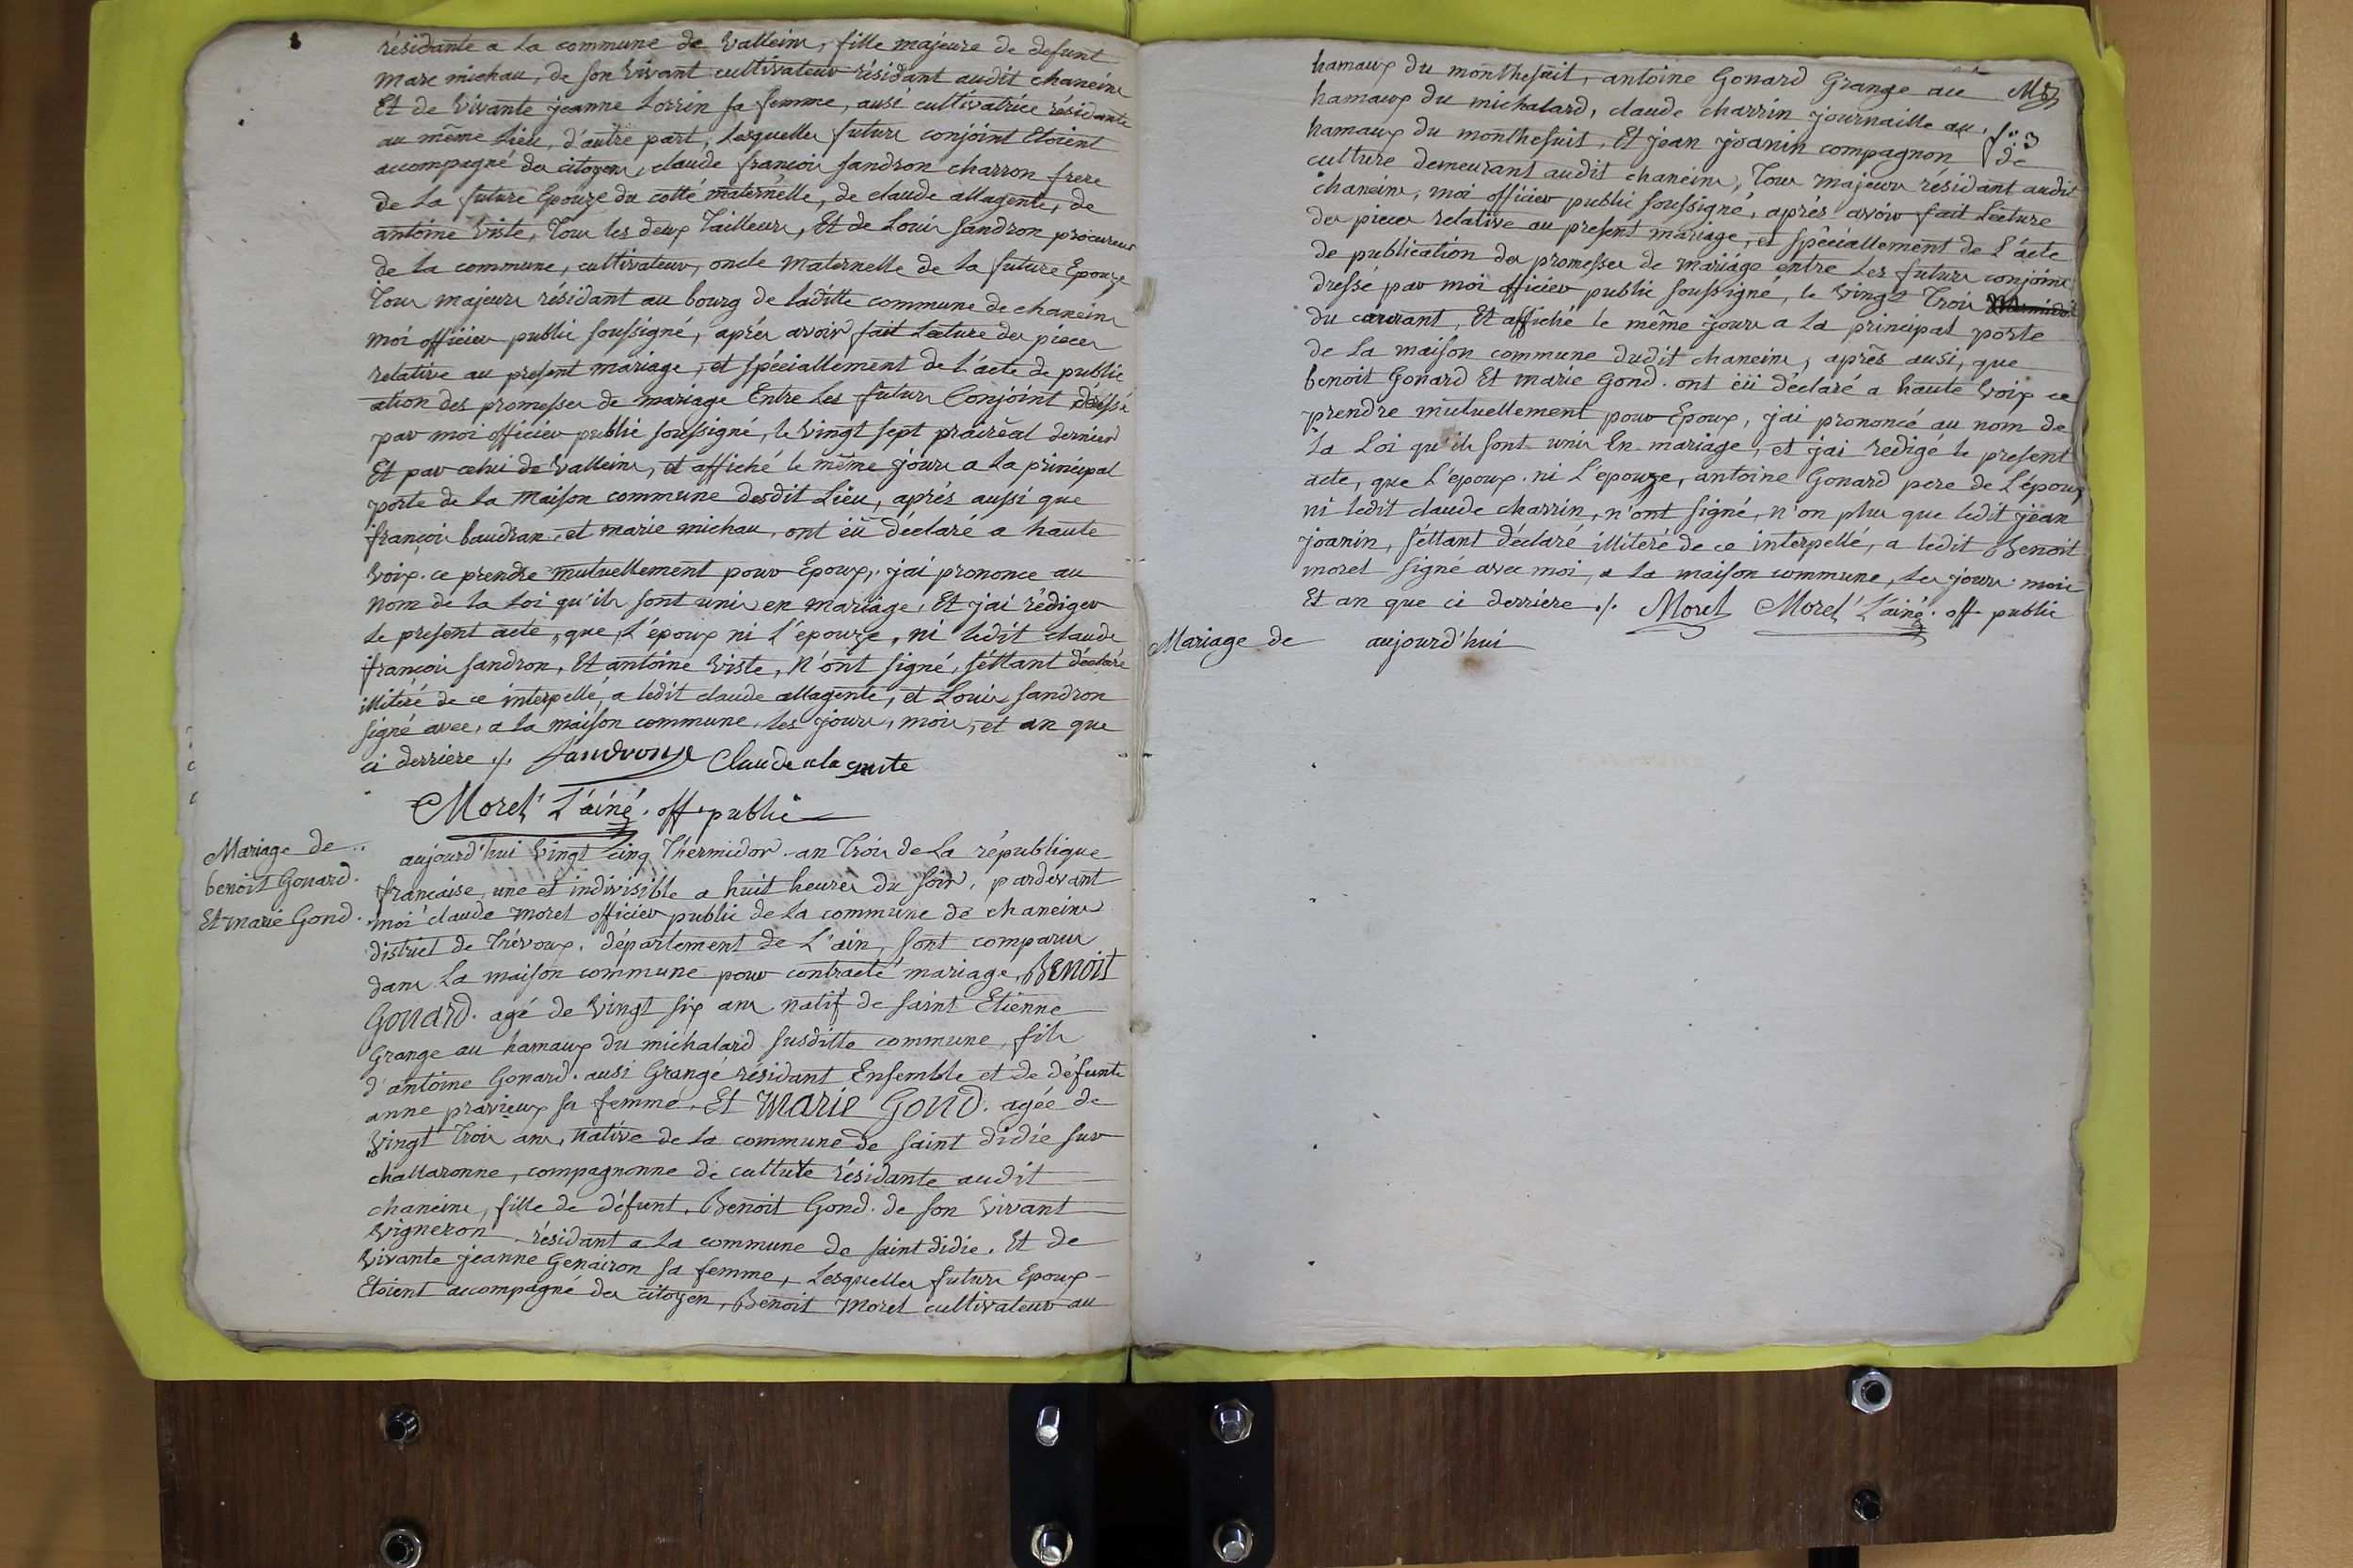 résidante a la commune de Valleins, fille majeure de defunt
marc michau, de son vivant cultivateur résidant audit chaneins
Et de vivante jeanne Lorrin sa femme, ausi cultivatrice résidante
au même Lieu, d'autre part, Lesquelles futurs conjoint Etoient
accompagné des citoyens, claude françois sandron charron frere
de La future Epouze du cotté maternelle, de claude allagente, de
antoine viste, Tous les deux Tailleurs, Et de Louis sandron procureur
de la commune, cultivateur, oncle maternelle de la future Epouze
Tous majeurs résidant au bourg de laditte commune de chaneins
moi officier public soussigné, aprés avoir fait Lecture des pieces
relative au present mariage, et spéciallement de l'acte de public
ation des promesses de mariage Entre Les futurs Conjoint dréssé
par moi officier public soussigné, le vingt sept prairéal dernier
Et par celui de Valleins, et affiché le même jours a La principal
porte de la maison commune desdit Lieu, aprés aussi que
françois baudran, et marie michau, ont éü déclaré a haute
voix. ce prendre mutuellement pour Epoux, j'ai prononce au
nom de la Loi qu'ils sont unis en mariage, Et j'ai rédiger
le present acte, que, L'époux ni L'epouze, ni ledit claude
françois sandron, Et antoine viste, n'ont signé, s'éttant déclaré
illitéré de ce interpellé, a ledit claude allagente, et Louis sandron
signé avec, a la maison commune, les jours, mois, et an que
ci derriere ./. Sandron Claude alagente
Morel L'ainé. off. public
Mariage de
benoit Gonard.
Et marie Gond.
aujourd'hui vingt cinq Thermidor. an Trois de La république
francaise, une et indivisible a huit heures du soir, pardevant
moi claude morel officier public de la commune de chaneins
district de Trévoux. département de L'ain, sont comparus
dans La maison commune pour contracté mariage, Benoit
Gonard. agé de vingt six ans natif de saint Etienne
Grange au hamaux du michalard susditte commune, fils
d'antoine Gonard. ausi Grangé résidant Ensemble et de défunte
anne pravieux sa femme, Et Marie Gond. agée de
vingt Trois ans, native de La commune de saint didié sur
challaronne, compagnonne de culture résidante audit
chaneins, fille de défunt, Benoit Gond. de son vivant
vigneron résidant a La commune de saint didie. Et de
vivante jeanne Genairon sa femme, Lesquelles futurs Epoux
Etoient accompagné des citoyen, Benoit morel cultivateur au
hamaux du monthesuit, antoine Gonard Grange au
hamaux du michalard, claude charrin journaille au
hamaux du monthesuit, Et jean joanin compagnon de
culture demeurant audit chaneins, Tous majeurs résidant audit
chaneins, moi officier public soussigné, aprés avoir fait Lecture
des pieces relative au present mariage, et spéciallement de L'acte
de publication des promesses de mariage entre Les futurs conjoins
dressé par moi officier public soussigné, le vingt Trois
du courant, Et affiché le même jours a La principal porte
de La maison commune dudit chaneins, aprés ausi, que
benoit Gonard Et marie Gond. ont éü déclaré a haute voix ce
prendre mutuellement pour Epoux, j'ai prononcé au nom de
La Loi qu'ils sont unis En mariage, et j'ai redigé le present
acte, que L'epoux. ni L'epouze, antoine Gonard pere de L'époux
ni ledit claude charrin, n'ont signé, n'on plus que ledit jean
joanin, s'éttant déclaré illiteré de ce interpellé, a ledit Benoit
morel signé avec moi, a la maison commune, les jours mois
Et an que ci derriere ./. Morel Morel L'ainé. off. public
Mariage de aujourd'hui